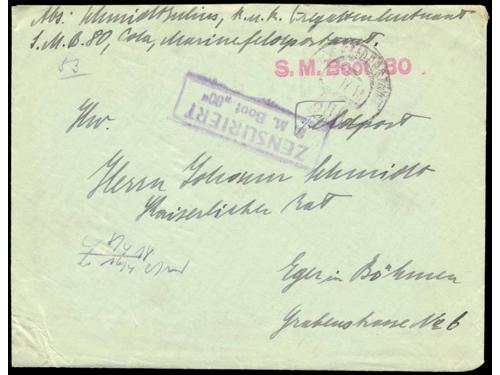 Abs: Schmidt Julius, k.u.k. Fregattenleutnant
S.M.B. 80, Cola, Marinefeldpostamt.
53
S. M. Boot 80
ZENSURIERT
S. M. Boot „80“
Hw.
Feldpost
Herrn Johann Schmidt
Kaiserlicher Rat
8/4 18
16/4
Eger in Böhmen
Grabenstrasse No 6